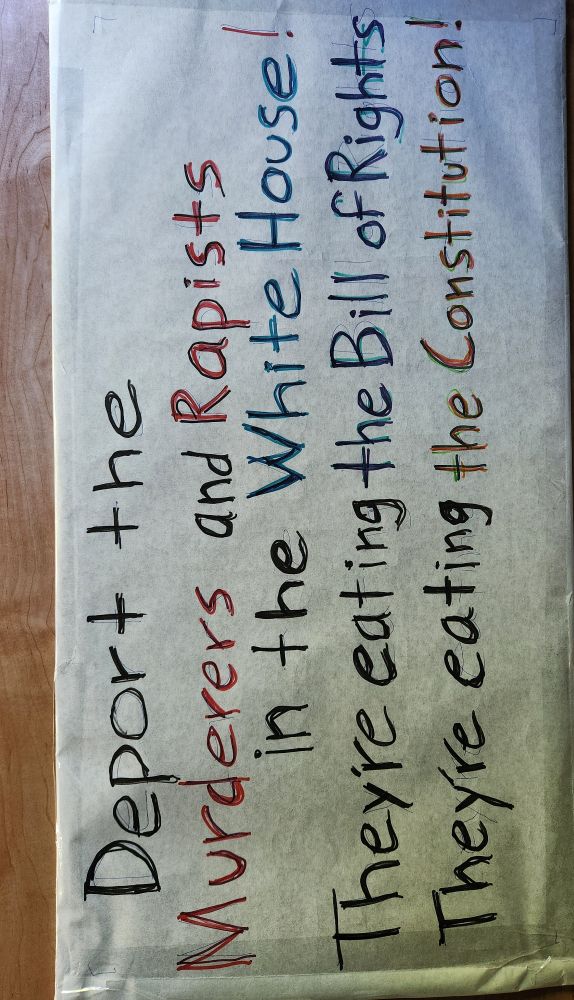 Deport the
Murderers and Rapists
in the White House!
They're eating the Bill of Rights
They're eating the Constitution!